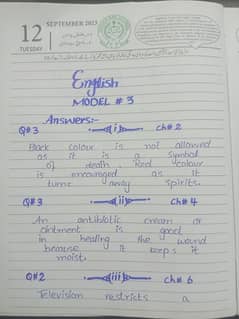 12
TUESDAY
SEPTEMBER 2023
English
MODEL # 3
Answers:-
Q#3 i ch# 2
Black colour is not allowed
as it is a symbol
of death. Red colour
is encouraged as it
turns away spirits.
Q#3 ii ch# 4
An antibiotic cream or
ointment is good
in healing the wound
because it keeps it
moist.
Q#2 iii ch# 6
Television restricts a